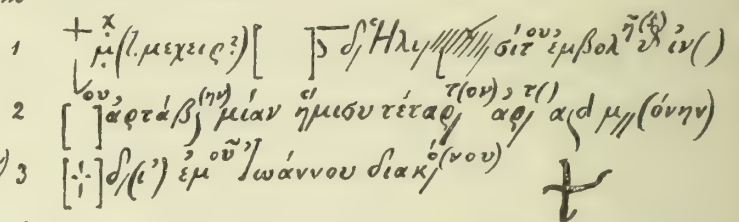 1 + μ(l. μεχειρ?)[ ] δ/ Ἡλι σίτου ἐμβολῆ(ς) ἰν( )
2 [ ]ου ἀρτάβ(ην) μίαν ἥμισυ τέταρτ(ον) ἀρτ( ) α d μ(όνην)
3 [+] δ/(ι’) ἐμοῦ Ἰωάννου διακό(νου) +